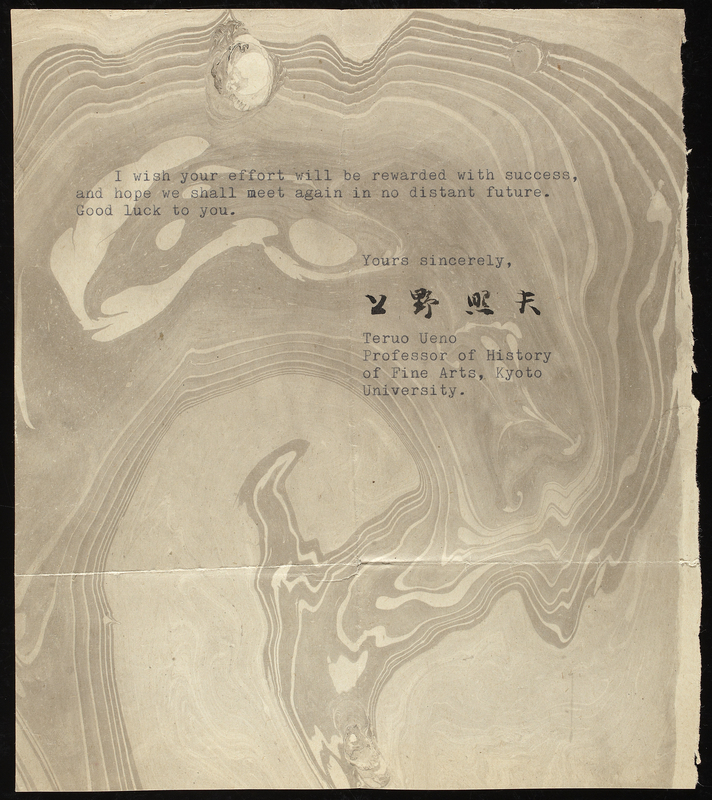 I wish your effort will be rewarded with success,
and hope we shall meet again in no distant future.
Good luck to you.
Yours sincerely,
上野照夫
Teruo Ueno
Professor of History
of Fine Arts, Kyoto
University.